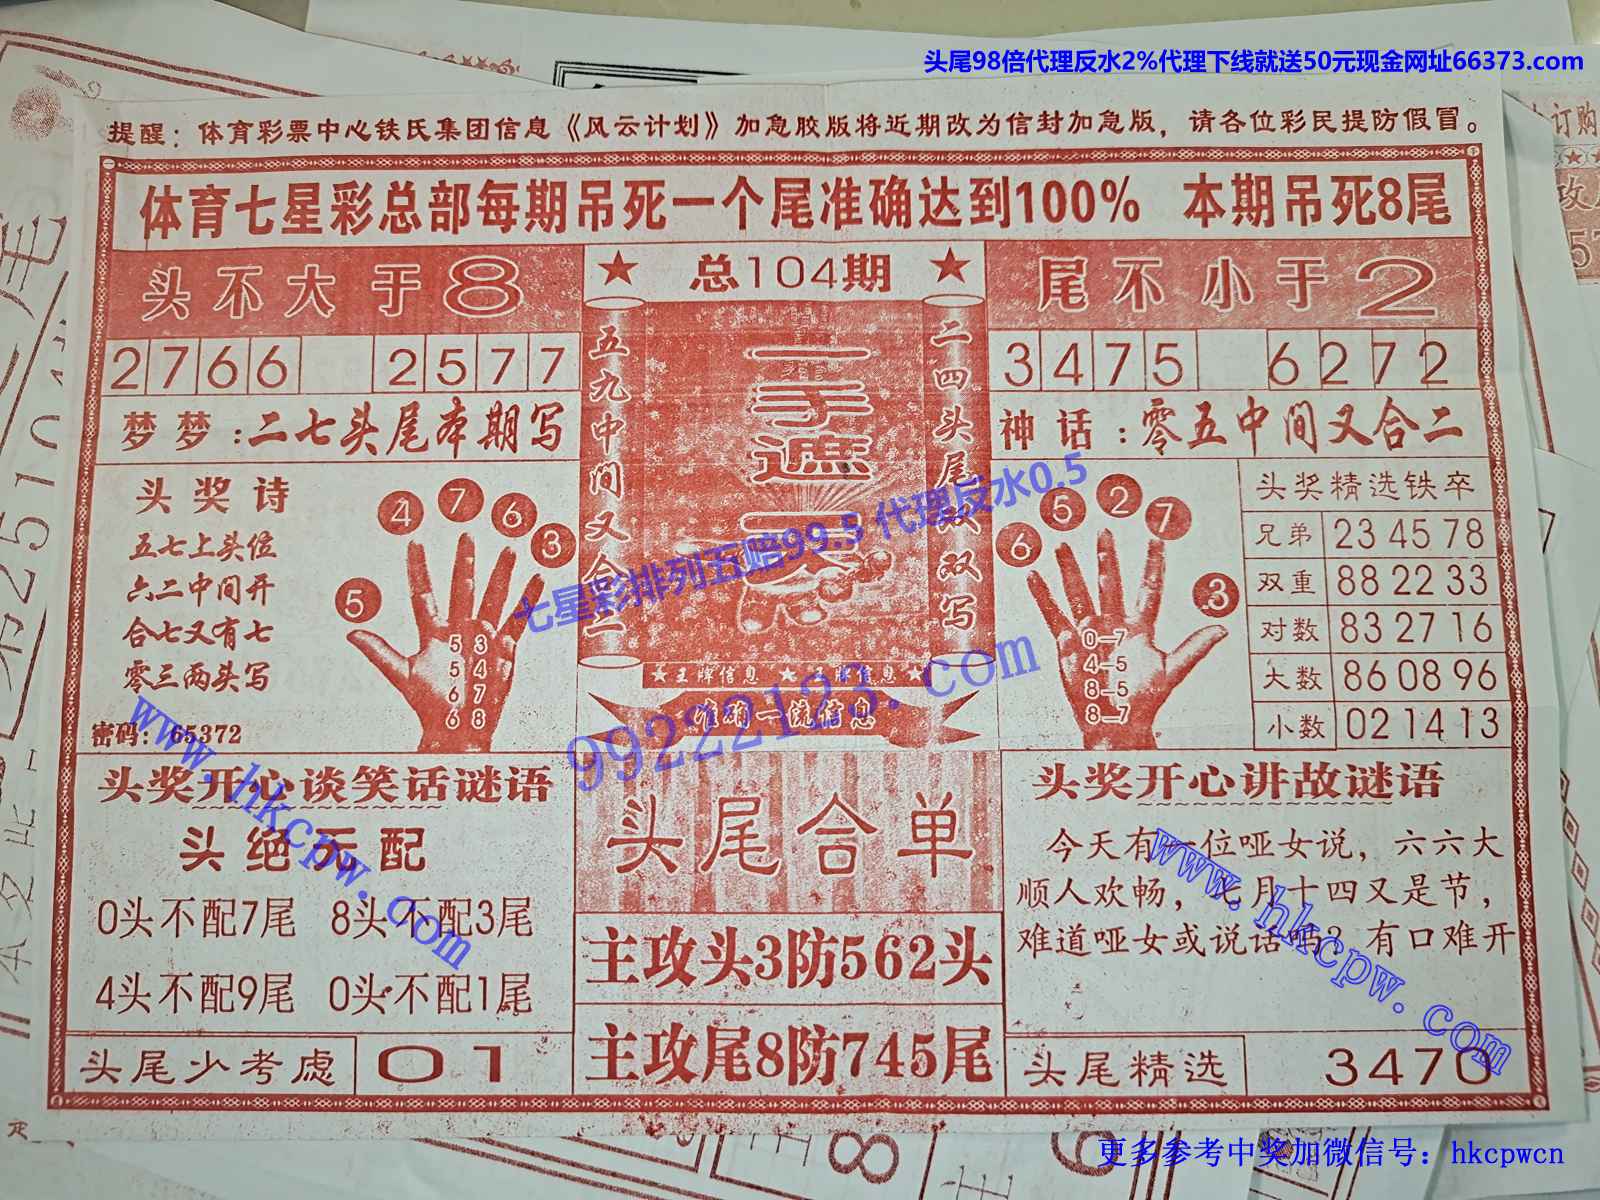 头尾98倍代理反水2%代理下线就送50元现金网址66373.com
提醒：体育彩票中心铁氏集团信息《风云计划》加急胶版将近期改为信封加急版，请各位彩民提防假冒。
体育七星彩总部每期吊死一个尾准确达到100% 本期吊死8尾
头不大于8
2766 2577
梦梦：二七头尾本期写
头奖诗
五七上头位
六二中间开
合七又有七
零三两头写
密码：65372
4 7 6 3 5
5 3
5 4
6 7
6 8
★ 总104期 ★
五九中间又合二
一手遮天
二四头尾双双写
★王牌信息★王牌信息★
准确一流信息
尾不小于2
3475 6272
神话：零五中间又合二
6 5 2 7 3
0–7
4–5
8–5
8–7
头奖精选铁卒
兄弟 23 45 78
双重 88 22 33
对数 83 27 16
大数 86 08 96
小数 02 14 13
七星彩排列五赔99.5 代理反水0.5
99222123.com
www.hkcpw.com
www.hkcpw.com
头奖开心谈笑话谜语
头绝无配
0头不配7尾 8头不配3尾
4头不配9尾 0头不配1尾
头尾少考虑 01
头尾合单
主攻头3防562头
主攻尾8防745尾
头奖开心讲故谜语
今天有一位哑女说，六六大
顺人欢畅，七月十四又是节，
难道哑女或说话吗？有口难开
头尾精选 3470
更多参考中奖加微信号：hkcpwcn